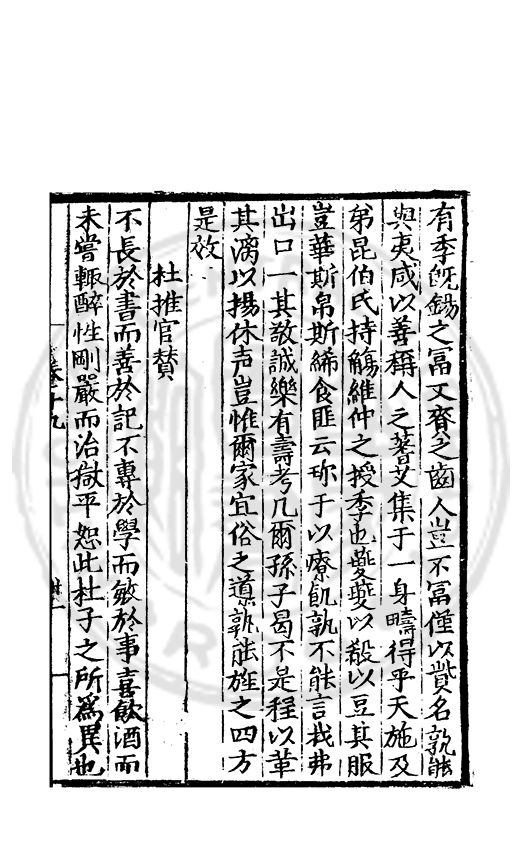 有季旣錫之冨又賚之齒人豈不冨僅以貲名孰能
與夷咸以善稱人之耆艾集于一身疇得乎天施及
弟昆伯氏持觴維仲之授季也夔夔以殽以豆其服
豈華斯帛斯絺食匪云珎于以療飢孰不能言我弗
出口一其敬誠樂有壽考凡爾孫子曷不是程以革
其漓以揚休声豈惟爾家宜俗之道孰能旌之四方
是效
杜推官贊
不長於書而善於記不專於學而敏於事喜飲酒而
未嘗輙醉性剛嚴而治獄平恕此杜子之所爲異也
卷十九